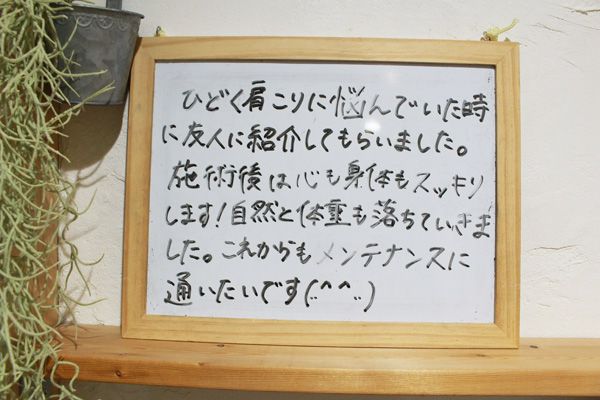 ひどく肩こりに悩んでいた時
に友人に紹介してもらいました。
施術後は心も身体もスッキリ
します!自然と体重も落ちていきま
した。これからもメンテナンスに
通いたいです(¨^^¨)